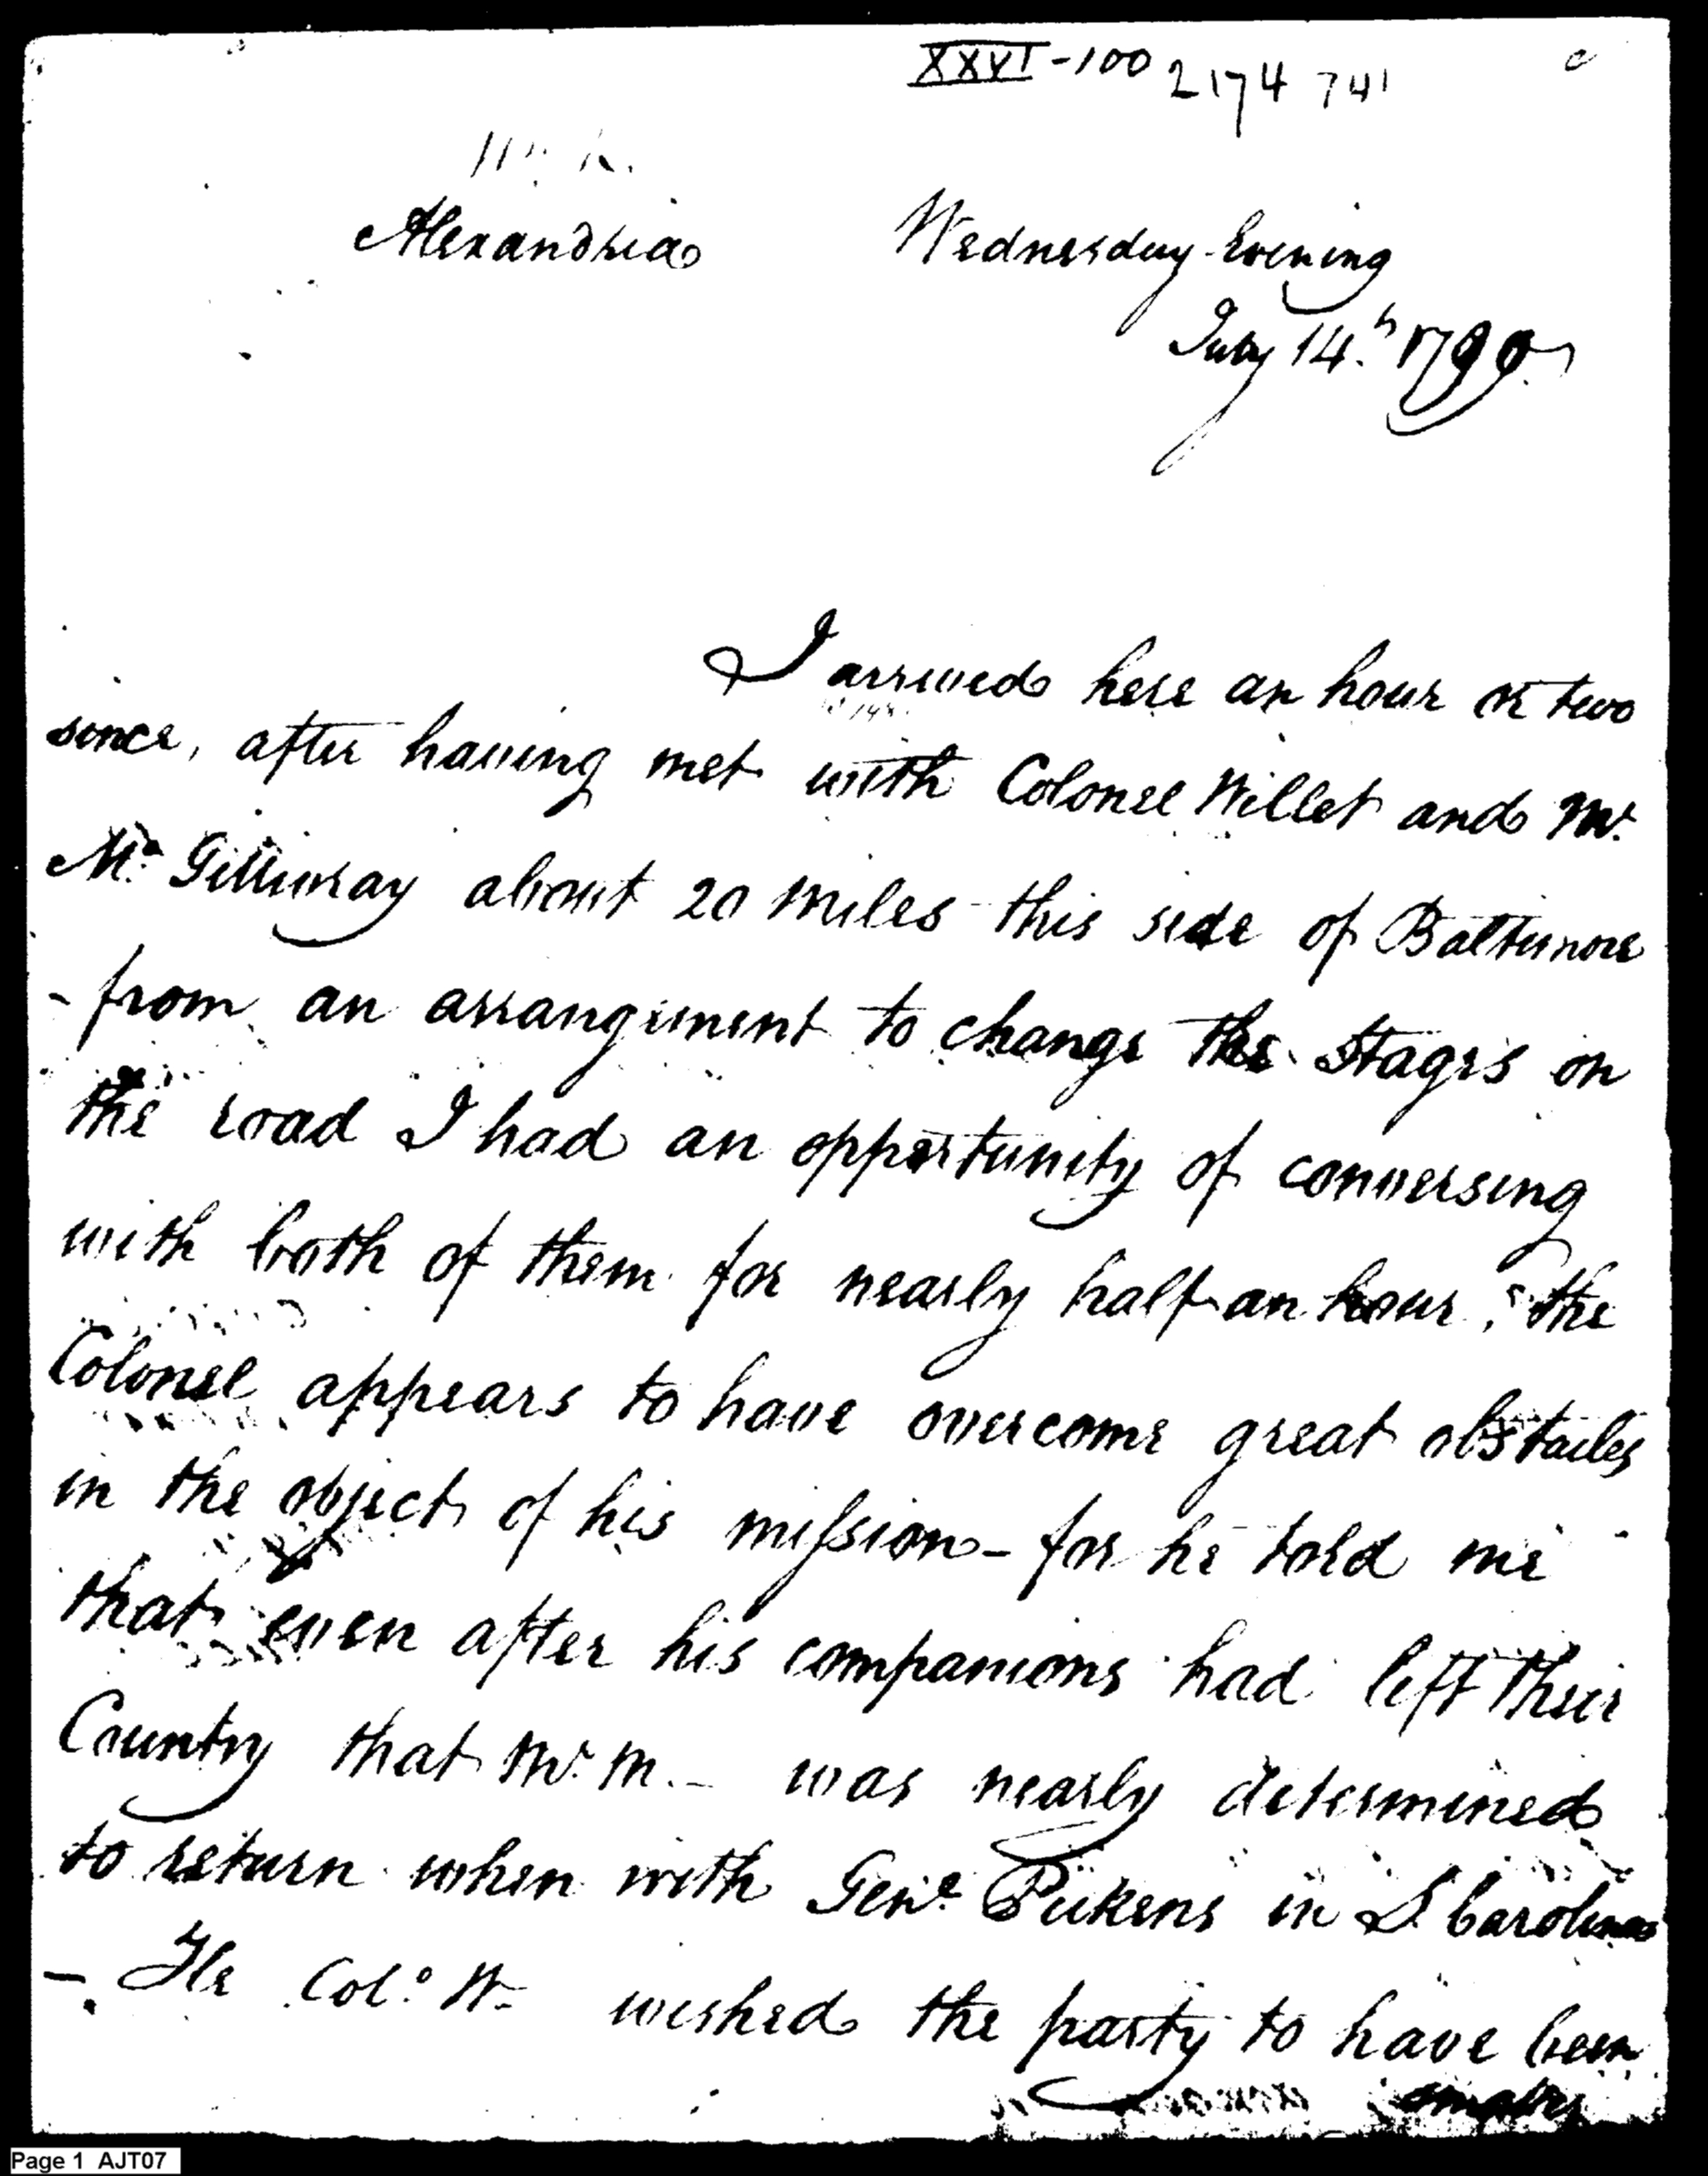 XXVI-100 2174 741
Alexandria Wednesday Evening
July 14.h 1790
I arrived here an hour or two
since, after having met with Colonel Willet and Mr.
Mc Gillivray about 20 miles this side of Baltimore
- from an arrangement to change the stages on
the road I had an oppertunity of conversing
with both of them for nearly half an hour, the
Colonel appears to have overcome great obstacles
in the object of his mission - for he told me
that even after his companions had left their
Country that Mr. M. - was nearly determined
to return when with Genl. Pickens in S. Carolina
-. He Colo. W- wished the party to have been
smaller
Page 1 AJT07